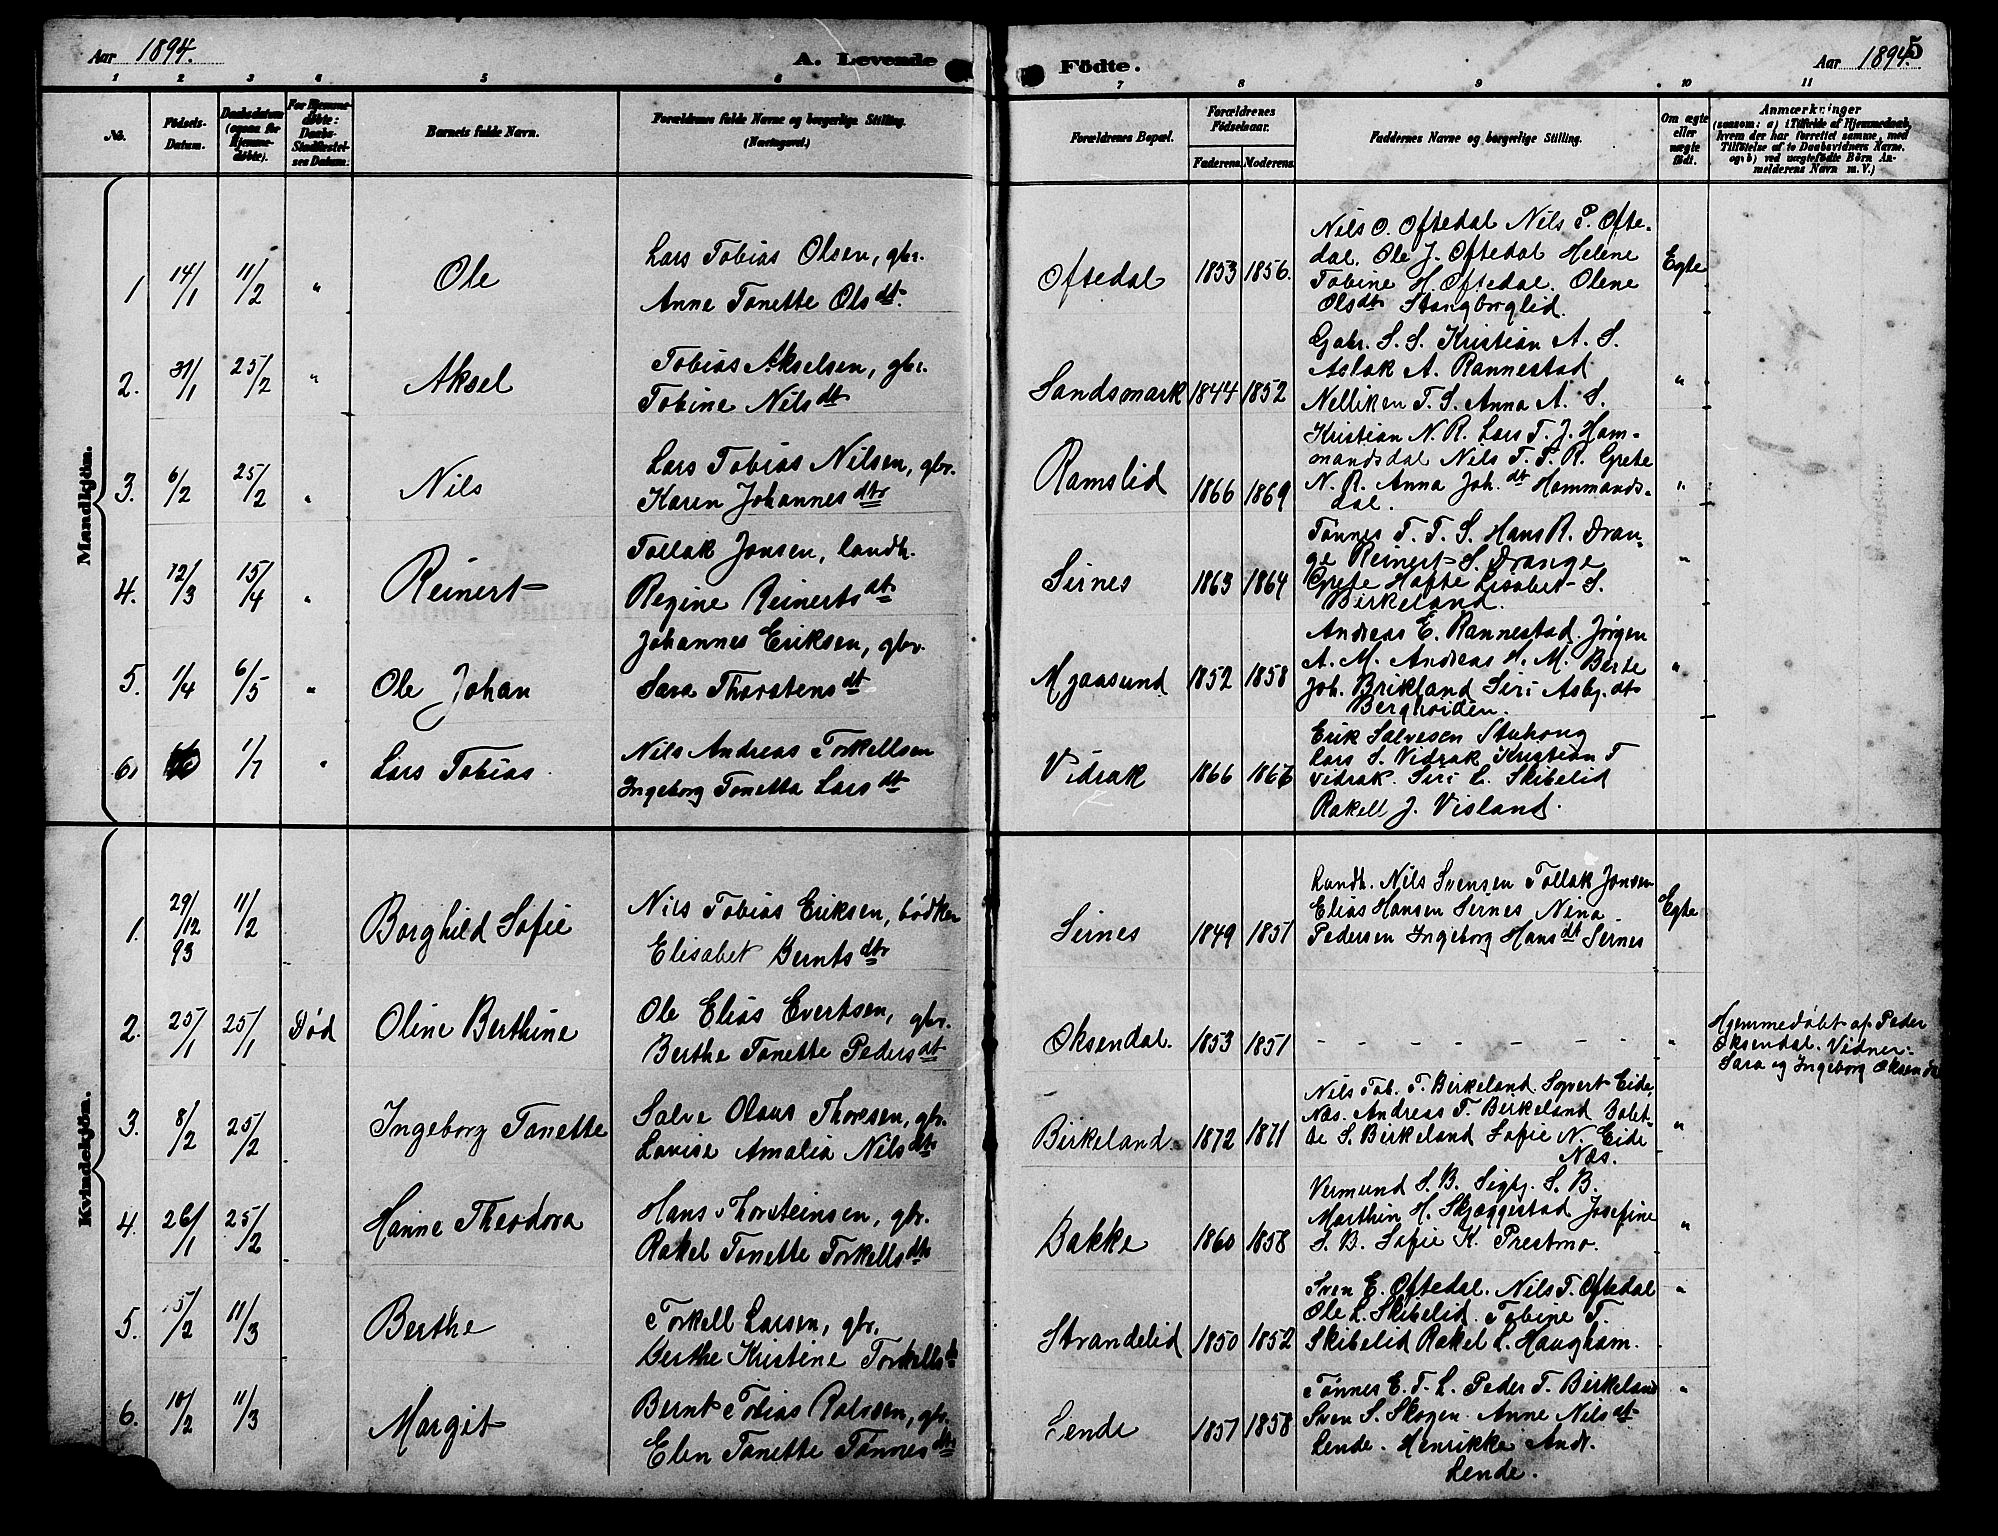 Aar 1894.
A. Levende
Födte.
Aar 1894.
5
1 2 3 4 5 6
7 8 9 10 11
No.
Födsels-
Datum.
Daabsdatum
(ogsaa for
Hjemme-
döbte).
For Hjemme-
döbte:
Daabs-
Stadfæstel-
ses Datum:
Barnets fulde Navn.
Forældrenes fulde Navne og borgerlige Stilling.
Forældrenes Bopæl.
Forældrenes
Födselsaar.
Faderens.
Moderens.
Faddernes Navne og borgerlige Stilling.
Om ægte
eller
uægte
födt.
Anmærkninger
(saasom: a) i Tilfælde af Hjemmedaab,
hvem der har forrettet samme, med
Tilföielse af to Daabsvidners Navne,
og b) ved uægtefödte Börn An-
melderens Navn m. V.)
Mandkjön.
1 14/1 11/2 " Ole
Lars Tobias Olsen, gbr.
Anne Tonette Olsdt.
Oftedal 1853 1856.
Nils O. Oftedal Nils P. Ofte-
dal. Ole J. Oftedal Helene
Tobine H. Oftedal. Olene
Olsdt Stangborglid.
Egte
2. 31/1 25/2 " Aksel
Tobias Akselsen, gbr.
Tobine Nilsdt
Sandsmark 1844 1852
Gabr. S. S. Kristian A. S.
Aslak A. Rannestad
Nelliken T. S. Anna A. S.
"
3. 6/2 25/2 " Nils
Lars Tobias Nilsen, gbr.
Karen Johannesdtr
Ramslid 1866 1869
Kristian N. R. Lars T. J. Ham-
mandsdal Nils T. T. R. Grete
N. R. Anna Joh.dt Hammands-
dal.
"
4. 12/3 15/4 " Reinert
Tollak Jonsen, landh.
Regine Reinertsdt
Sirnes 1863 1864
Tønnes T. T. S. Hans R. Dran-
ge Reinert S. Drange
Grete Hafte Lisabet S.
Birkeland.
"
5. 1/4 6/5 " Ole Johan
Johannes Eriksen, gbr.
Sara Thorstensdt
Mjaasund 1852 1858
Andreas E. Rannestad. Jørgen
A. M. Andreas H. M. Berte
Joh. Brikland Siri Asbj.dt
Bergheiden.
"
6. 1/7 " Lars Tobias
Nils Andreas Torkellsen
Ingeborg Tonetta Larsdt
Vidrak 1866 1866
Erik Salvesen Stuhoug
Lars S. Vidrak Kristian T
Vidrak. Siri L. Skibelid
Rakell J. Visland.
Kvindekjön.
1. 29/12 93 11/2 Borghild Sofie
Nils Tobias Eriksen, bødker
Elisabet Berntsdtr
Sirnes 1849 1851
Landh. Nils Svensen Tollak Jonsen
Elias Hansen Sirnes Nina
Pedersen Ingeborg Hansdt Sirnes
Egte
2. 25/1 25/1 Død Oline Berthine
Ole Elias Evertsen, gbr.
Berthe Tonette Pedersdt
Oksendal. 1853 1851
- - - - - - - -
"
Hjemmedøbt af Peder
Oksendal. Vidner:
Sara og Ingeborg Oksendal
3. 8/2 25/2 Ingeborg Tonette
Salve Olaus Thoresen, gbr.
Lovise Amalia Nilsdtr
Birkeland. 1872 1871
Nils Tob. T. Birkeland. Syvert Eide,
Næs. Andreas T. Birkeland Bolet-
te S. Birkeland Sofie N. Eide
Næs.
"
4. 26/1 25/2 Hanne Theodora
Hans Thorsteinsen, gbr.
Rakel Tonette Torkellsdtr
Bakke 1860 1858
Vermund S. B. Sigbj. S. B.
Marthin H. Skjæggestad Josefine
S. B. Sofie K. Prestmo.
"
5. 15/2 11/3 Berthe
Torkell Larsen, gbr.
Berthe Kristine Torkellsdt
Strandelid 1850 1852
Sven E. Oftedal. Nils T. Oftedal
Ole L. Skibelid. Tobine T.
Skibelid Rakel L. Haugham.
"
6. 10/2 11/3 Margit
Bernt Tobias Rolvsen, gbr.
Elen Tonette Tønnesdtr
Lende 1857 1858
Tønnes E. T. L. Peder T. Birkeland
Sven S. Skogen. Anne Nilsdt
Lende. Henrikke Andr.
Lende.
"